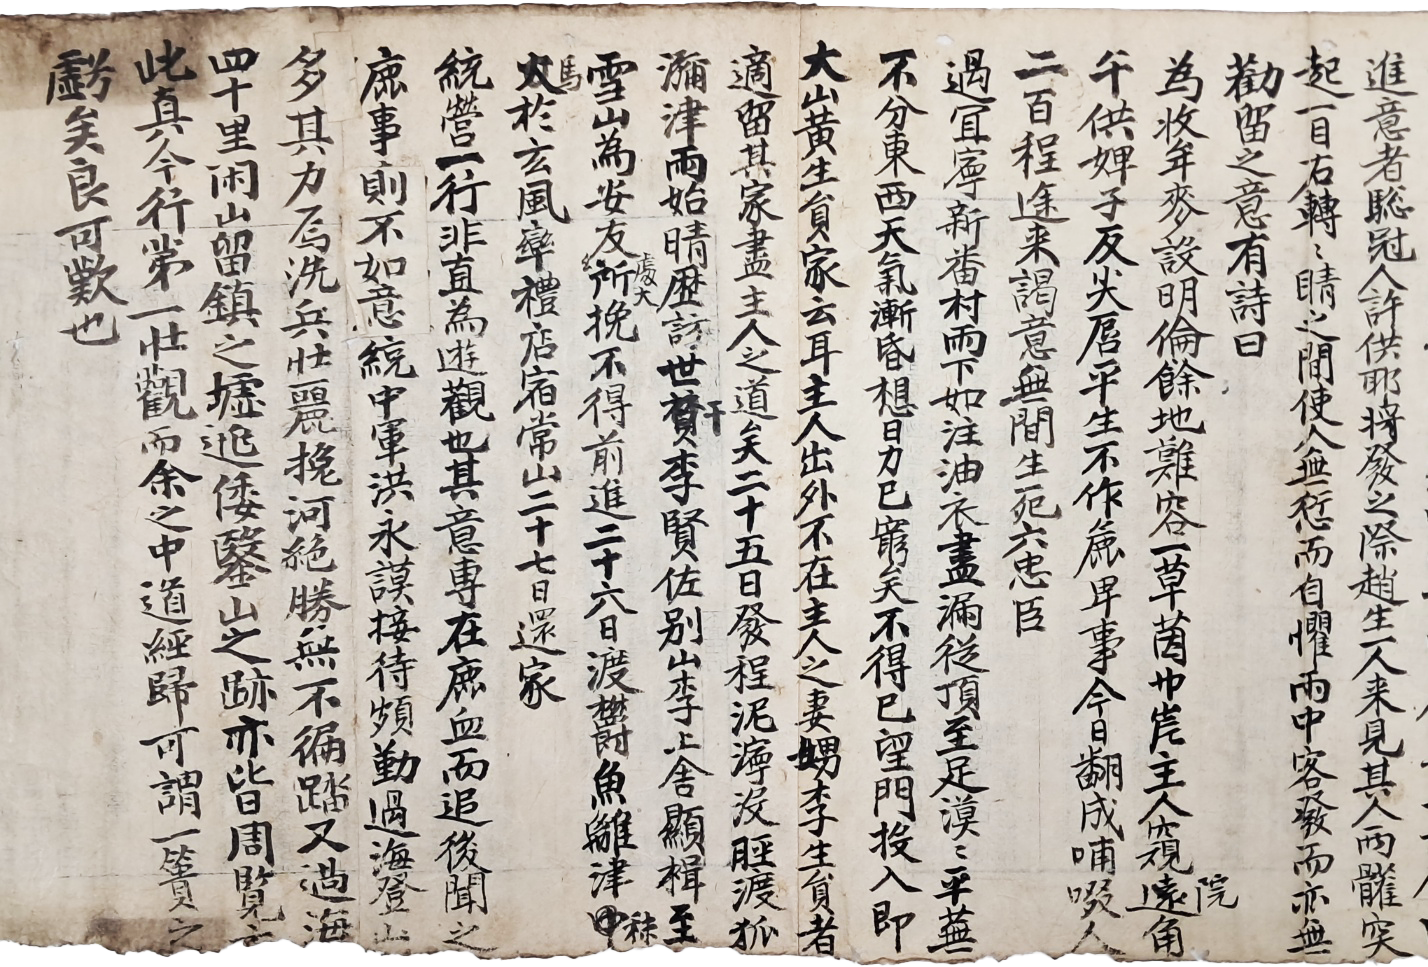 進意者聡冠人許供耶將發之際趙生一人来見其人両髏突
起一目右轉〻睛之間使人無愆而自懼雨中客發而亦無
勸留之意有詩曰
為收年麥設明倫餘地難容一草茵中岸主人窺遠角院
午供婢子反尖唇平生不作麁卑事今日翻成哺啜人
二百程途来謁意無間生死六忠臣
過宜寧新畨村雨下如注油衣盡漏從頂至足漠〻平蕪
不分東西天氣漸昏想日力已窮矣不得已望門投入即
大山黃生貟家云耳主人出外不在主人之妻娚李生貟者
適留其家盡主人之道矣二十五日發程泥濘沒脛渡狐
瀰津雨始晴歴訪世贇李賢佐别山李上舍顯楫至
雪山為安友所挽不得前進二十六日渡欝魚離津中秣
馬於玄風率禮店宿常山二十七日還家
統營一行非直為遊觀也其意専在鹿血而追後聞之
鹿事則不如意統中軍洪永謨接待頻勤過海登山
多其力焉洗兵壮麗挽河絶勝無不徧踏又過海
四十里闲山留鎮之墟追倭鑿山之跡亦皆周覧
此真今行第一壮觀而余之中道經歸可謂一簣之
虧矣良可歎也